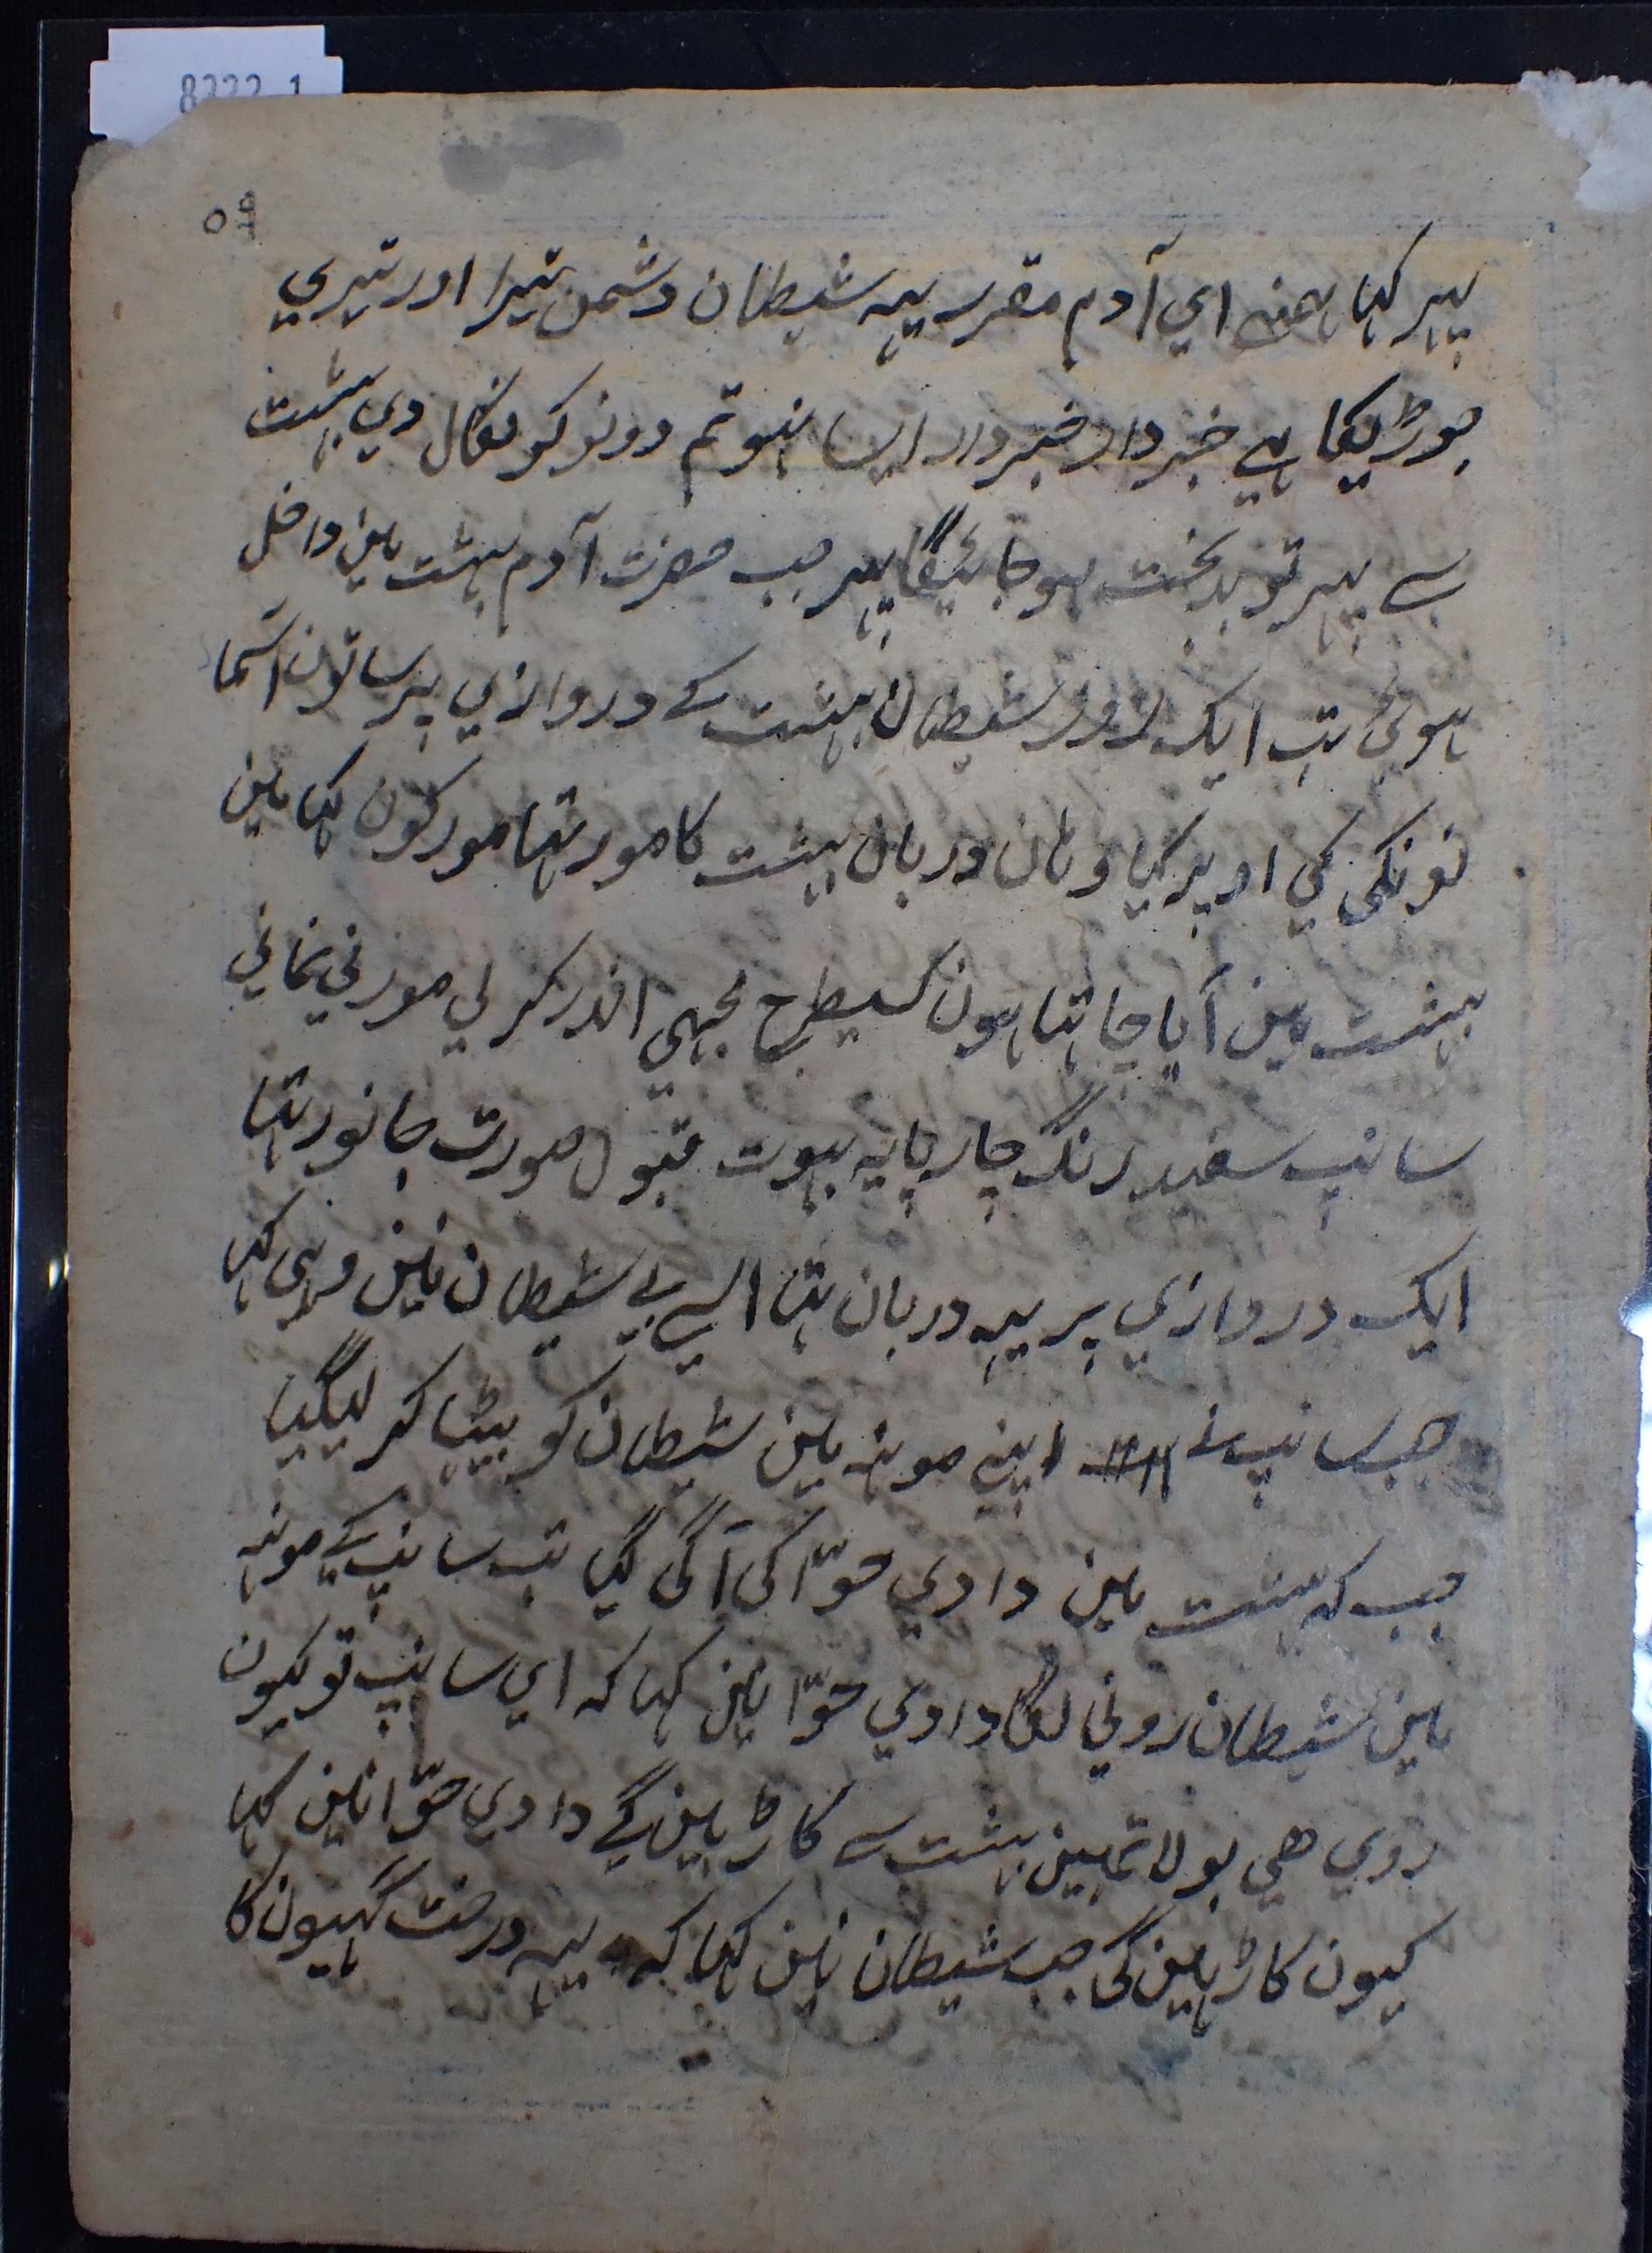 8333 1
۵۹
پہر کہا ہمنے اي آدم مقرر یہہ شیطان دشمن تیرا اور تیري
جوڑیکا ہے خبردار خبردار ایسا نہو تم دونو کو نکال دي بہشت
سے پہر تو بدبخت ہو جائیگا پہر جب حضرت آدم بہشت مین داخل
ہوئی تب ایک روز شیطان بہشت کے دروازي پر ساتون آسما
نونکی کي اوپر گیا وہان دربان بہشت کا مور تہا مور کون کہا مین
بہشت مین آیا چاہتا ہون کسیطرح مجہي اندر کر لي مور ني نماني
سانپ سفید رنگ چار پایہ بہوت قبول صورت جانور تہا
ایک دروازي پر یہہ دربان تہا اسے بي شیطان نین وہي کہا
جب سانپ نے اپنے مونہہ مین شیطان کو بیٹہا کر لیگیا
جب کہ بہشت مین دادي حوّا کی آگی گیا تب سانپ کے مونہہ
مین شیطان روني لگا دادي حوّا نین کہا کہ اي سانپ تو کیون
روي هي بولا تمہین بہشت سے کاڑہین گے دادي حوّا نین کہا
کیون کاڑہین گی جب شیطان نین کہا کہ یہہ درخت گیہون کا